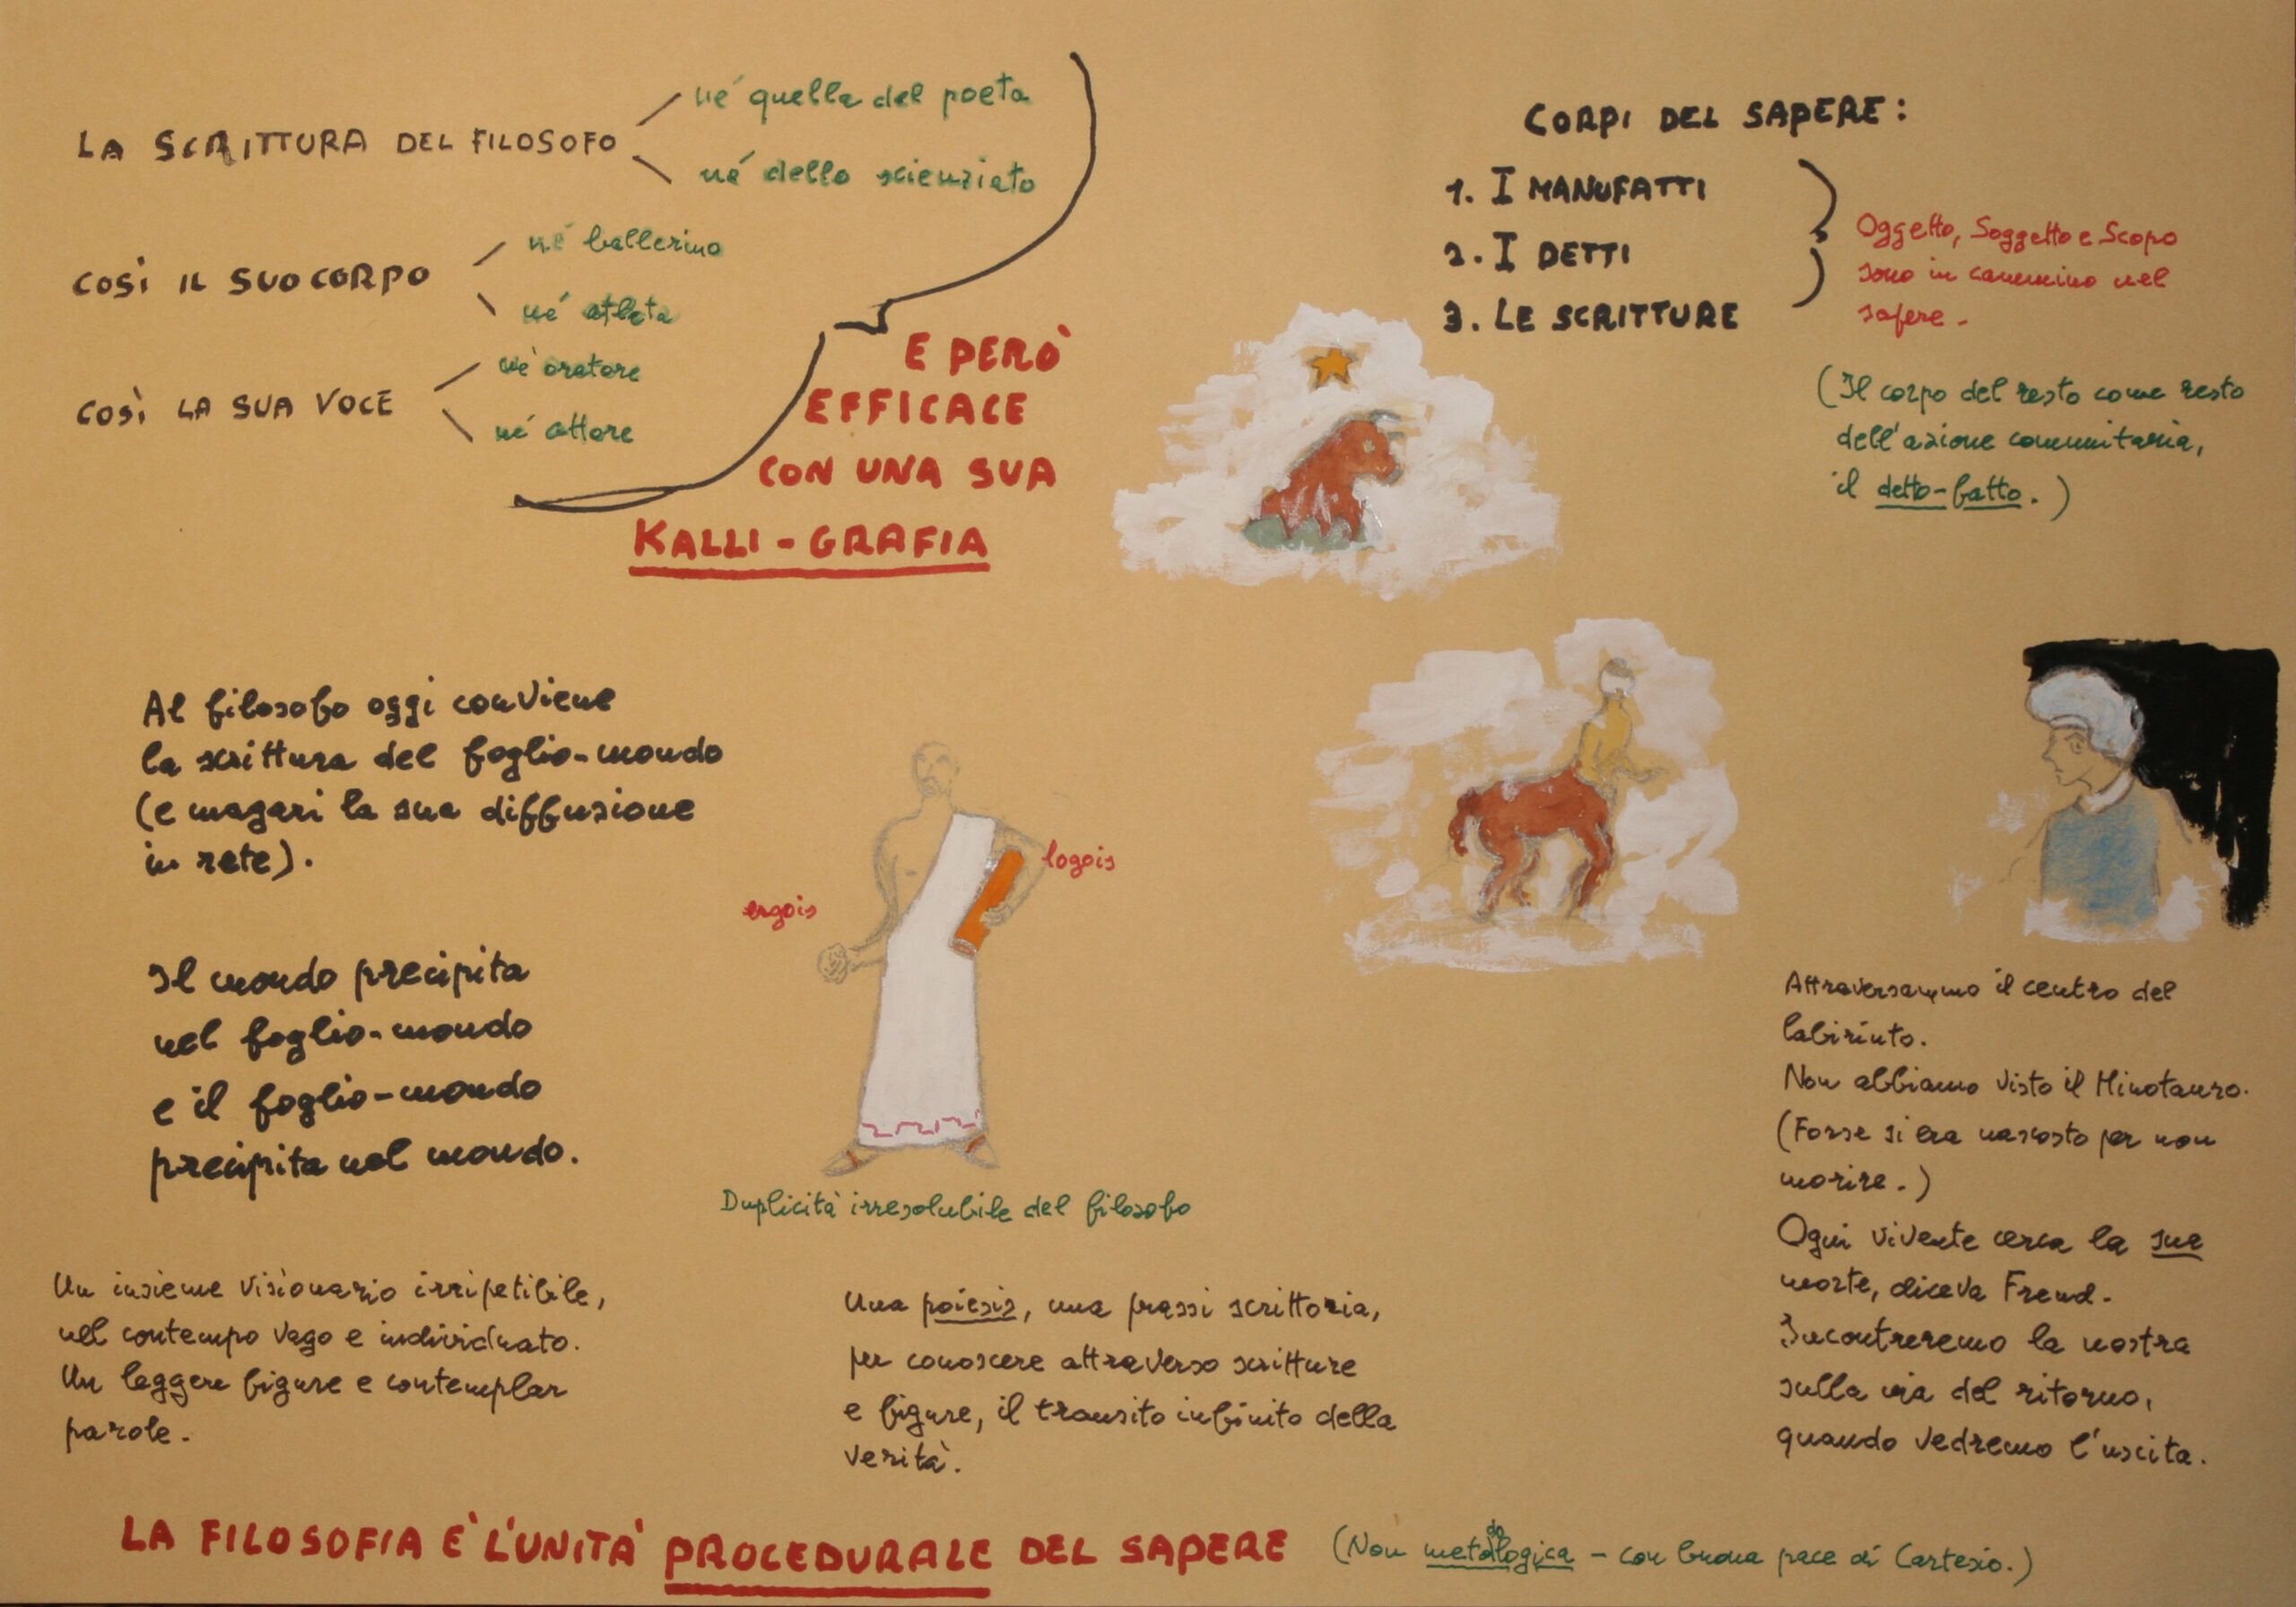 LA SCRITTURA DEL FILOSOFO
né quella del poeta
né dello scienziato
COSÌ IL SUO CORPO
né ballerino
né atleta
COSÌ LA SUA VOCE
né oratore
né attore
E PERÒ
EFFICACE
CON UNA SUA
KALLI-GRAFIA
CORPI DEL SAPERE:
1. I MANUFATTI
2. I DETTI
3. LE SCRITTURE
Oggetto, Soggetto e Scopo
sono in cammino nel
sapere.
(Il corpo del resto come resto
dell'azione comunitaria,
il detto-fatto.)
Al filosofo oggi conviene
la scrittura del foglio-mondo
(e magari la sua diffusione
in rete).
Il mondo precipita
nel foglio-mondo
e il foglio-mondo
precipita nel mondo.
Un insieme visionario irripetibile,
nel contempo vago e individuato.
Un leggere figure e contemplar
parole.
ergois
logois
Duplicità irresolubile del filosofo
Una poiesis, una prassi scrittoria,
per conoscere attraverso scritture
e figure, il transito infinito della
verità.
Attraversammo il centro del
labirinto.
Non abbiamo visto il Minotauro.
(Forse si era nascosto per non
morire.)
Ogni vivente cerca la sua
morte, diceva Freud.
Incontreremo la nostra
sulla via del ritorno,
quando vedremo l'uscita.
LA FILOSOFIA È L'UNITÀ PROCEDURALE DEL SAPERE (Non metodologica - con buona pace di Cartesio.)